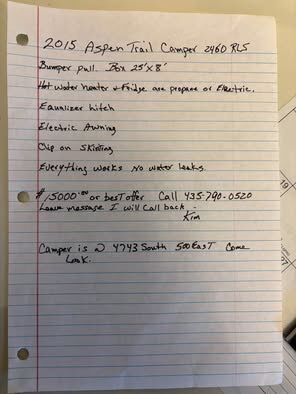 2015 Aspen Trail Camper 2460 RLS
Bumper pull. Box 25'x8'
Hot water heater & Fridge are propane or Electric.
Equalizer hitch
Electric Awning
Clip on Skirting
Everything works No water leaks.
$15000.00 or best offer Call 435-790-0520
Leave message I will call back -
Kim
Camper is @ 4743 South 500 East Come
Look.
19